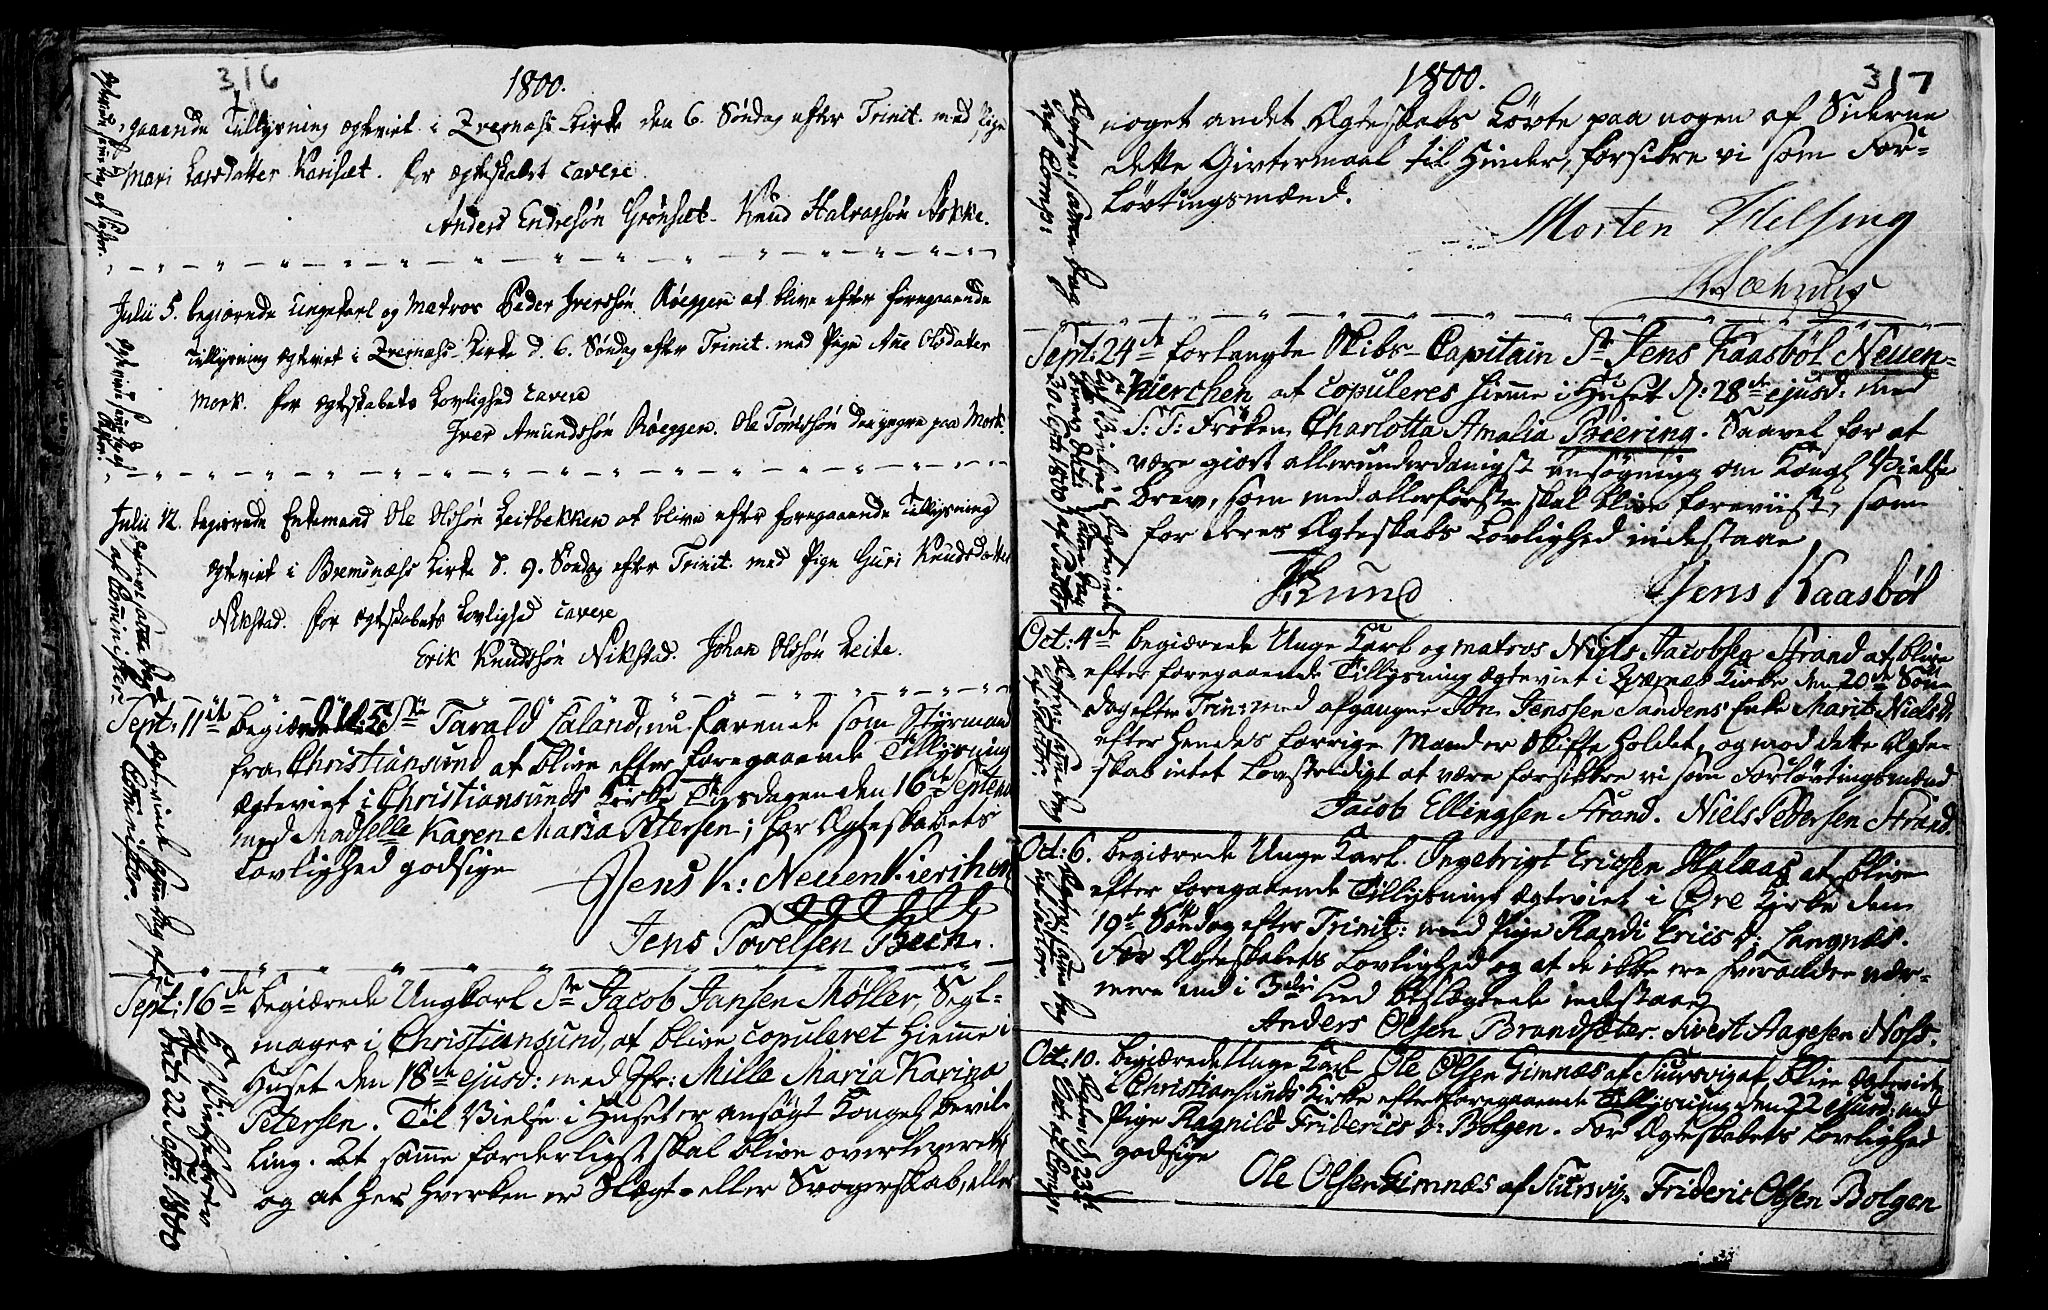 316
1800.
gaaende Tillysning ægteviet i Qvernæss Kirke den 6. Søndag efter Trinit. med Pige
Mari Larsdatter Karihæt. for ægteskabet cavere
Anders Endresøn Grønset. Knud Halvorsøn
Julii 5. begiærede ungekarl og Matros Peder Iversøn Røeggen at blive efter foregaaende
Tillysning ægteviet i Qvernæss Kirke d. 6. Søndag efter Trinit. med Pige Ane Olsdatter
Mork. for ægteskabets Lovlighed cavere
Iver Amundsøn Røeggen. Ole den yngre paa Mork.
Julii 12. begiærede Enkemand Ole Olsøn Leitbekken at blive efter foregaaende Tillysning
ægteviet i Bremsnæss Kirke d. 9. Søndag efter Trinit. med Pige Guri Knudsdatter
Nikstad. for ægteskabets Lovlighed cavere
Erik Knudssøn Nikstad. Johan Olssøn Leite.
Sept: 11te begiærede Sr Tarald Laland, nu farende som Styrmand
fra Christiansund at blive efter foregaaende Tillysning
ægteviet i Christiansunds Kirke Tiisdagen den 16de Septemb
med Madselle Karen Maria Petersen; for Ægteskabets
Lovlighed godsige
Jens K: Neuenkierchen
Jens Povelsen Bech.
Sept: 16de begiærede Ungkarl Sr Jacob Jansen Møller, Segl-
mager i Christiansund, at blive copuleret hiemme i
Huset den 18de ejusd: med Jfr: Mille Maria Karina
Petersen. Til Vielse i Huset er ansøgt Kongel: bevil-
ling. At samme forderligst skal blive overleveret
og at her hverken er Slægt- eller Svogerskab, eller
1800.
317
noget andet Ægteskabs Løvte paa nogen af Siderne
dette Givtermaal til Hinder, forsikre vi som For-
Løvtingsmænd.
Morten Thelsing
Sept: 24de forlangte Skibs-Capitain Sr Jens Kaasbøl Neuen-
kierchen at copuleres hiemme i Huset d: 28de ejusd: med
S: T: Frøken Charlotta Amalia Biering. Saavel for at
være giort allerunderdanigst ansøgning om Kongl Vielse
brev, som med allerførste skal blive foreviist, som
for deres Ægteskabs Lovlighed indestaae
Jens Kaasbøl
Oct: 4de begiærede Unge Karl og matros Niels Jacobsen Strand at blive
efter foregaaende Tillysning ægteviet i Qværnes Kirke den 20de Søn-
dag efter Trin: med afgangne Jon Jenssen Sandens Enke Marit Niels d:
efter hendes forrige Mand er Skifte holdet, og mod dette Ægte-
skab intet Lovstridigt at være forsikkre vi som Forløvtingsmænd
Jacob Ellingsen Strand. Niels Pedersen Strand.
Oct: 6. begiærede Unge Karl Ingebrigt Ericsen Halaas at blive
efter foregaaende Tillysning ægteviet i Øre Kirke den
19de Søndag efter Trinit: med Pige Randi Erics d: Langnæs.
For Ægteskabets Lovlighed og at de ikke ere hverandre nær-
mere end i 3die Leed beslægtede indestaae
Anders Olsen Brandsæter. Sivert Aagesen Noss.
Oct: 10. begiærede Unge Karl Ole Olsen Gimnæs af Suursvig at blive ægteviet
i Christiansunds Kirke efter foregaaende Tillysning den 22 ejusd: med
Pige Ragnild Friderics d: Bolgen. For Ægteskabets Lovlighed
godsige
Ole Olsen Gimnæs af Suursvig. Frideric Olsen Bolgen